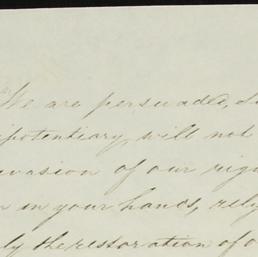 We are persuaded,
potentiary, will not
vasion of our rig
in your hands, rely
ly the restoration of o